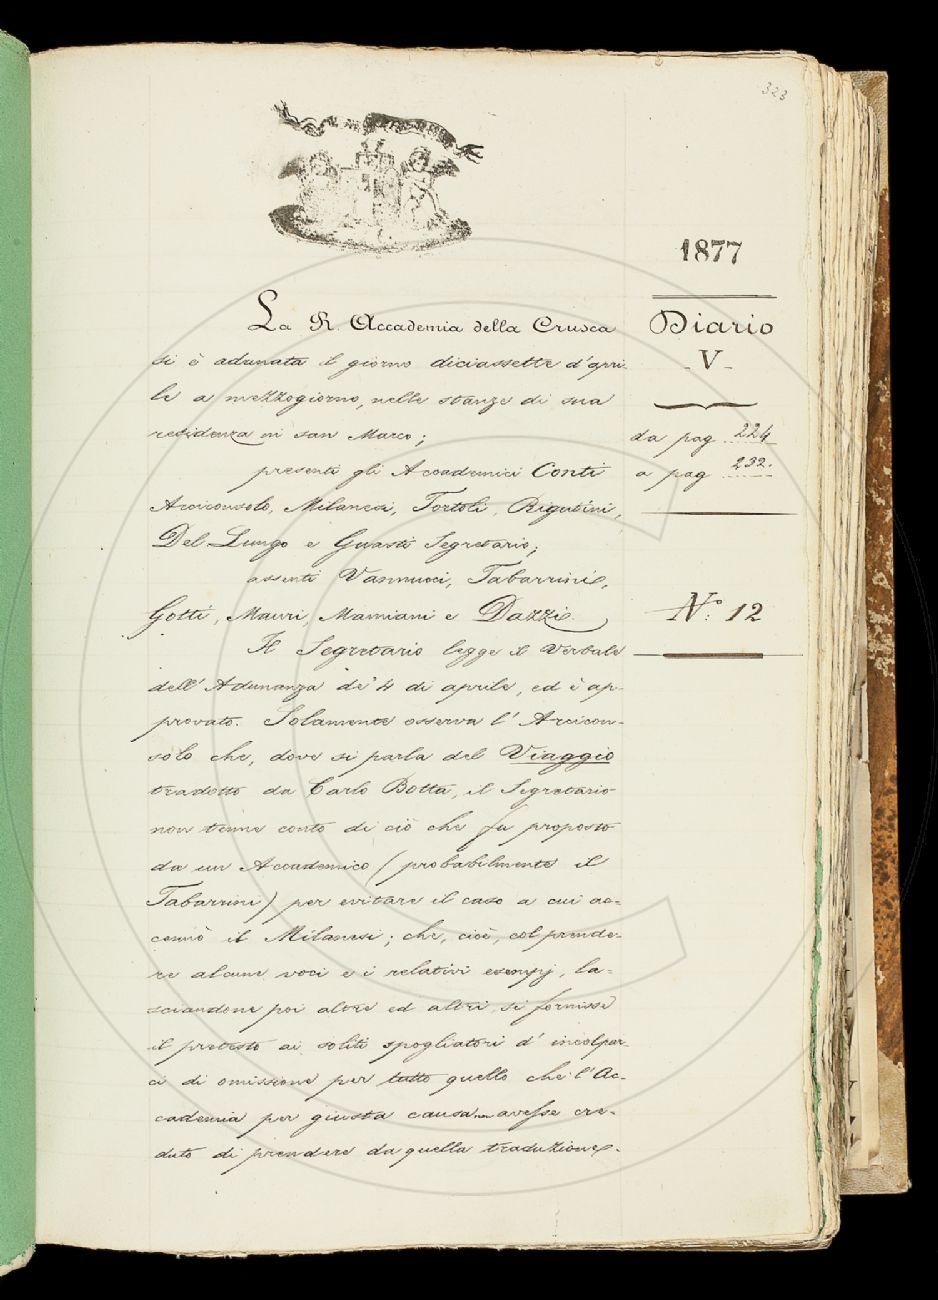 323
1877
Diario
- V -
da pag. 224
a pag. 232.
N.º 12
La R. Accademia della Crusca
si è adunata il giorno diciassette d'apri-
le a mezzogiorno, nelle stanze di sua
residenza in san Marco;
presenti gli Accademici Conti
Arciconsolo, Milanesi, Tortoli, Rigutini,
Del Lungo e Guasti Segretario;
assenti Vannucci, Tabarrini,
Gotti, Mauri, Mamiani e Dazzi.
Il Segretario legge il Verbale
dell'Adunanza de' 4 di aprile, ed è ap-
provato. Solamente osserva l'Arcicon-
solo che, dove si parla del Viaggio
tradotto da Carlo Botta, il Segretario
non tenne conto di ciò che fu proposto
da un Accademico (probabilmente il
Tabarrini) per evitare il caso a cui ac-
cennò il Milanesi; che, cioè, col prende-
re alcune voci e i relativi esempj, la-
sciandone poi altre ed altri, si fornisse
il pretesto ai soliti spogliatori d'incolpar-
ci di omissione per tutto quello che l'Ac-
cademia per giusta causa non avesse cre-
duto di prendere da quella traduzione.